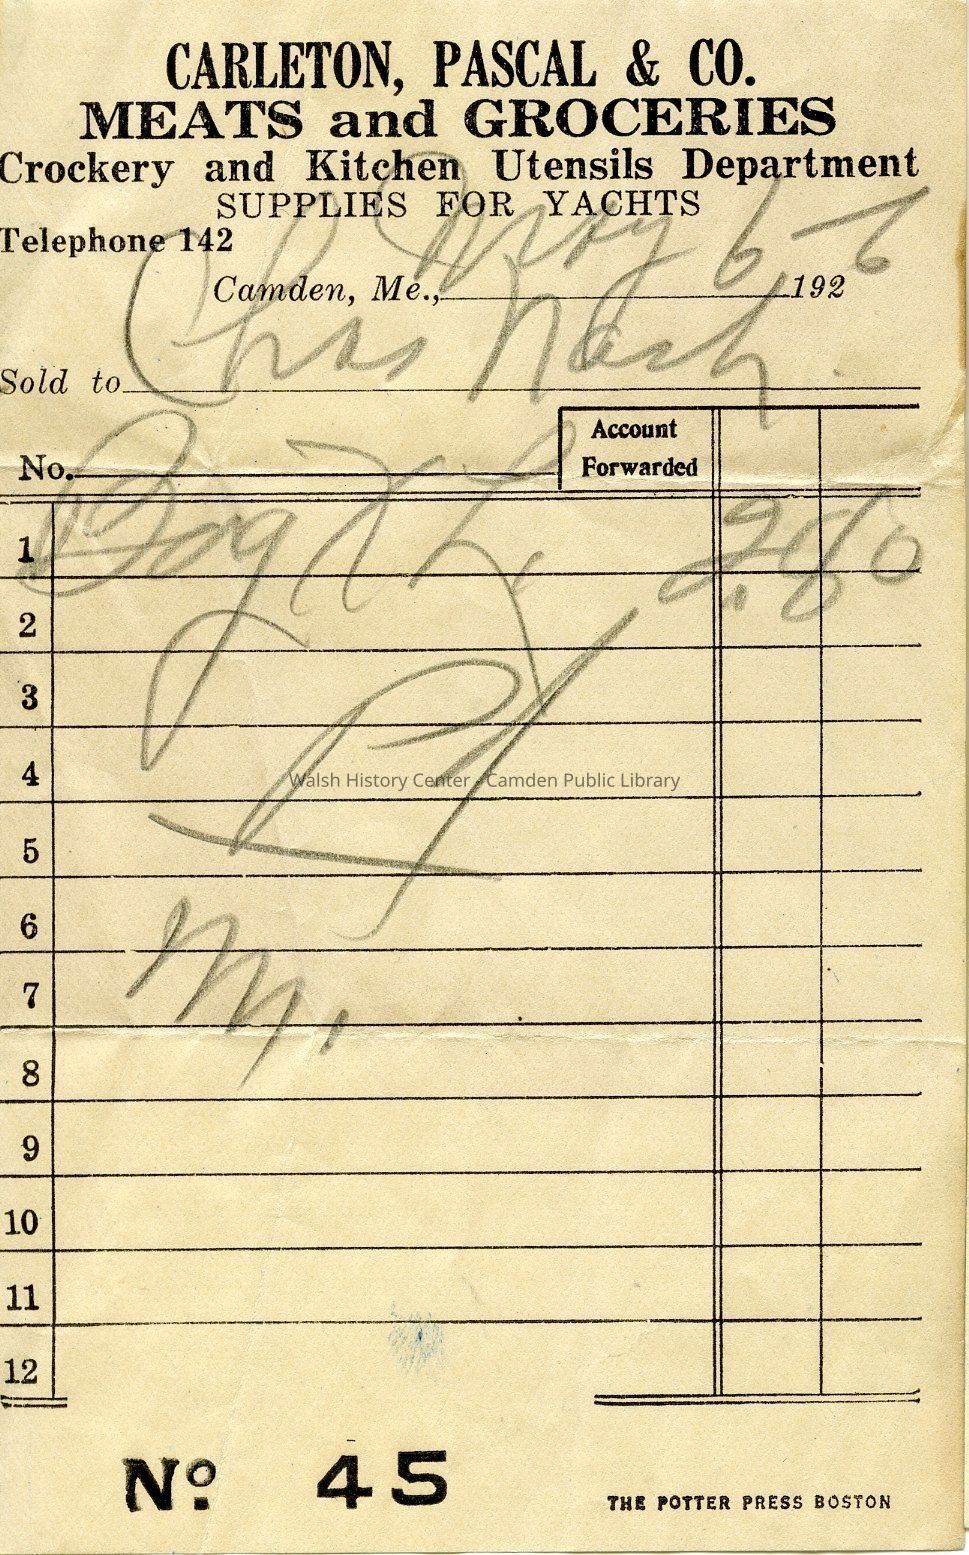 CARLETON, PASCAL & CO.
MEATS and GROCERIES
Crockery and Kitchen Utensils Department
SUPPLIES FOR YACHTS
Telephone 142
Camden, Me., May 6-6 192
Sold to Chas Nash
No.
Account Forwarded
1 Bag 2.80
2
3
4
Walsh History Center - Camden Public Library
5
6
7 M.
8
9
10
11
12
No. 45
THE POTTER PRESS BOSTON